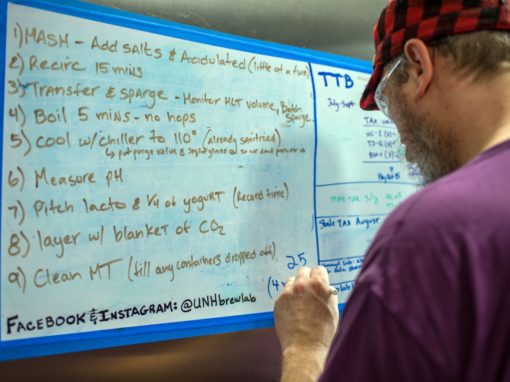 1) MASH - Add salts & Acidulated (little at a time)
2) Recirc 15 mins
3) Transfer & sparge - Monitor MLT volume, Batch Sparge
4) Boil 5 mins - no hops
5) Cool w/chiller to 110° (already sanitized)
put purge valve & sightglass on so we don't
6) Measure PH
7) Pitch lacto & 1/4 of yogurt (Record time)
8) layer w/ blanket of CO2
9) Clean MT (fill any containers dropped off)
25
(4
FACEBOOK & INSTAGRAM: @UNHbrewlab
TTB
July-Sept
TAX
State TAX August